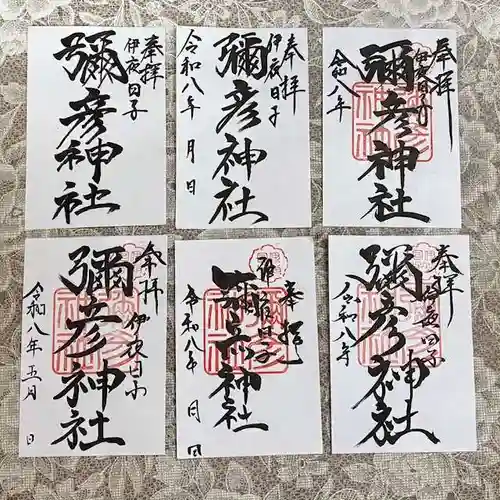 奉拝
伊夜日子
彌彦神社
奉拝
伊夜日子
彌彦神社
令和八年 月 日
奉拝
伊夜日子
彌彦神社
令和八年
奉拝
伊夜日子
彌彦神社
令和八年 五月 日
奉拝
彌彦神社
令和八年 月 日
奉拝
伊夜日子
彌彦神社
令和八年